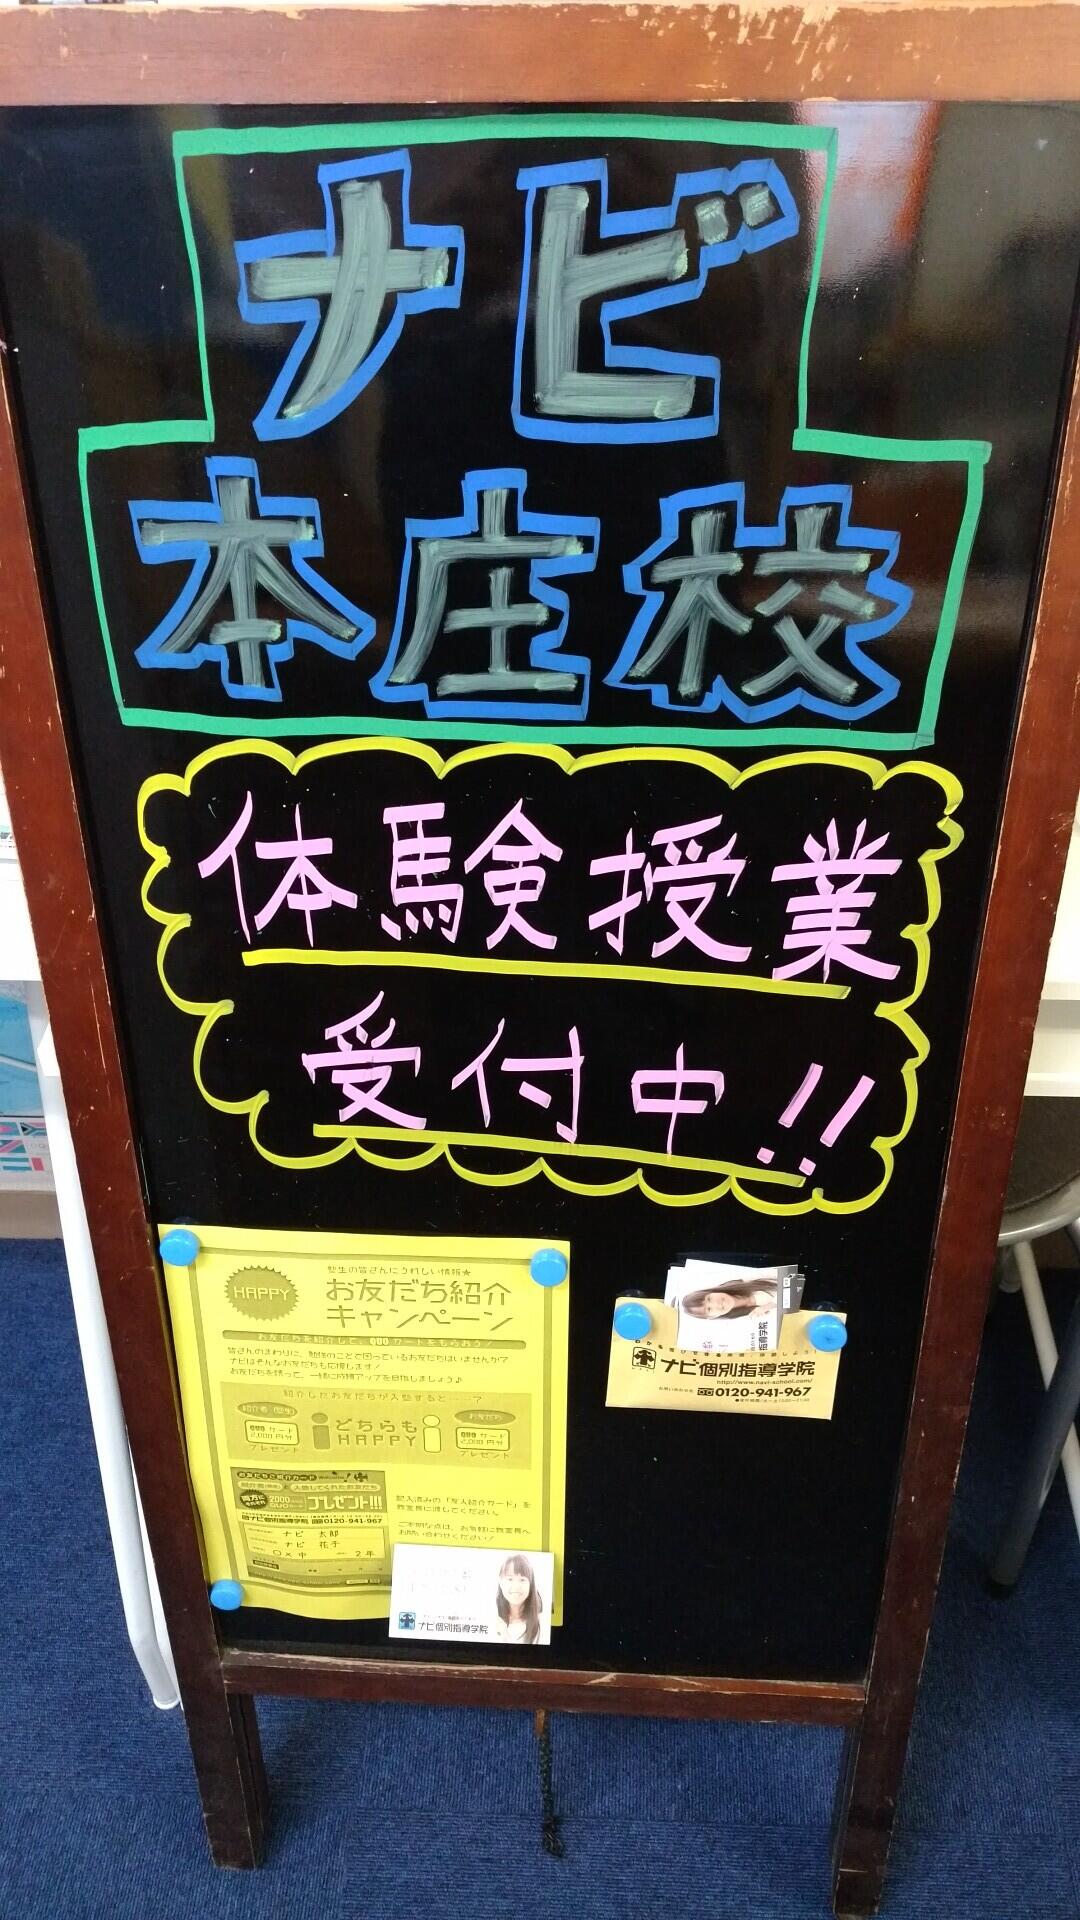 ナビ
本庄校
体験授業
受付中!!
塾生の皆さんにうれしい情報★
HAPPY
お友だち紹介
キャンペーン
お友だちを紹介して、QUOカードをもらおう!
皆さんのまわりに、勉強のことで困っているお友だちはいませんか?
ナビはそんなお友だちも応援します!
お友だちを誘って、一緒に成績アップを目指しましょう♪
紹介したお友だちが入塾すると……?
紹介者(塾生)
QUOカード
2,000円分
プレゼント
どちらも
HAPPY
お友だち
QUOカード
2,000円分
プレゼント
お友だちご紹介カード
2000
プレゼント!!!
ナビ個別指導学院 0120-941-967
ナビ 太郎
ナビ 花子
○×中 2年
記入済みの「友人紹介カード」を
教室長に渡してください。
ご不明な点は、お気軽に教室長へ
お問い合わせください!
ナビ個別指導学院
ナビ個別指導学院
http://www.navi-school.com/
お問い合わせは 0120-941-967